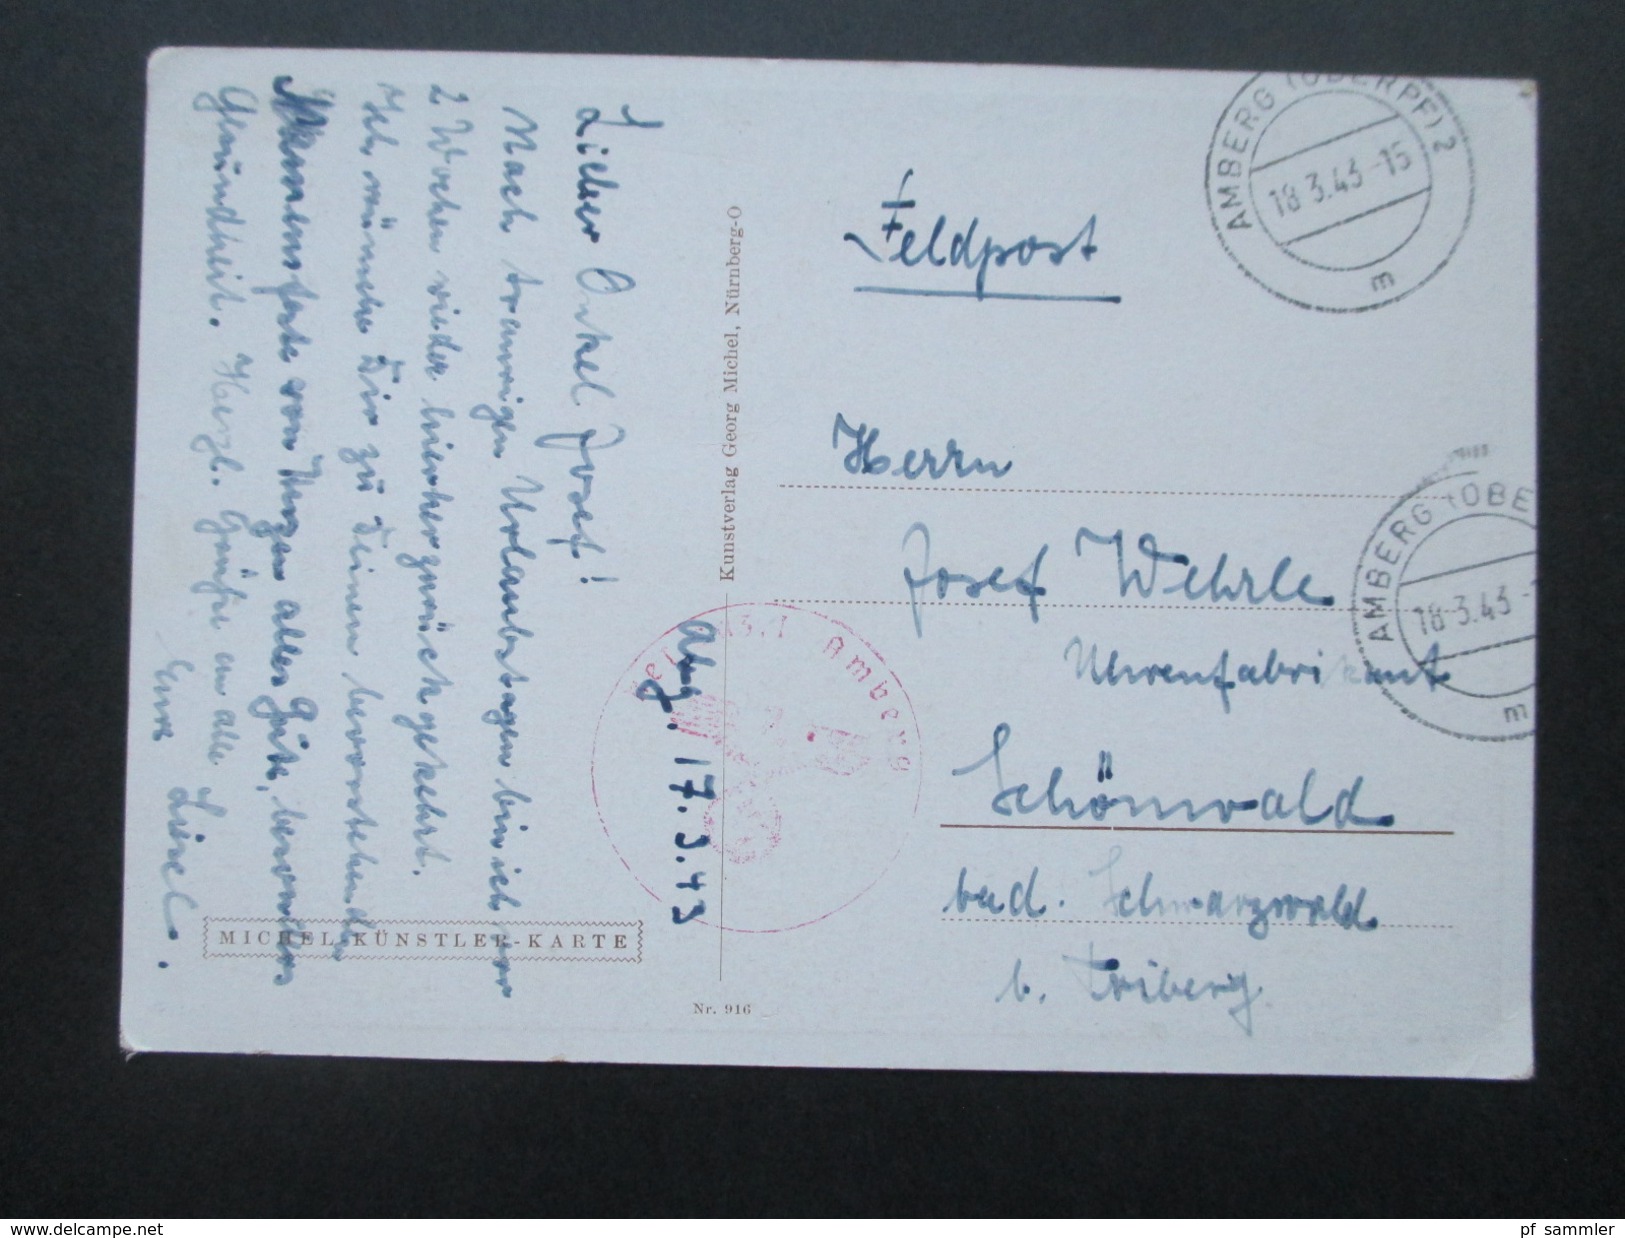 Lieber Onkel Josef!
Nach traurigen Urlaubstagen bin ich vor
2 Wochen wieder hierher zurückgekehrt.
Ich wünsche Dir zu Deinem bevorstehenden
Namensfeste von Herzen alles Gute, besonders
Gesundheit. Herzl. Grüße an alle
Eure Liesel.
MICHEL-KÜNSTLER-KARTE
Kunstverlag Georg Michel, Nürnberg-O
Nr. 916
Abg. 17.3.43
Amberg
Feldpost
AMBERG (OBERPF) 2
18.3.43-15
m
Herrn
Josef Wehrle
Uhrenfabrikant
Schönwald
bad. Schwarzwald
b. Triberg
AMBERG (OBE
18.3.43-1
m
delcampe.net
pf_sammler